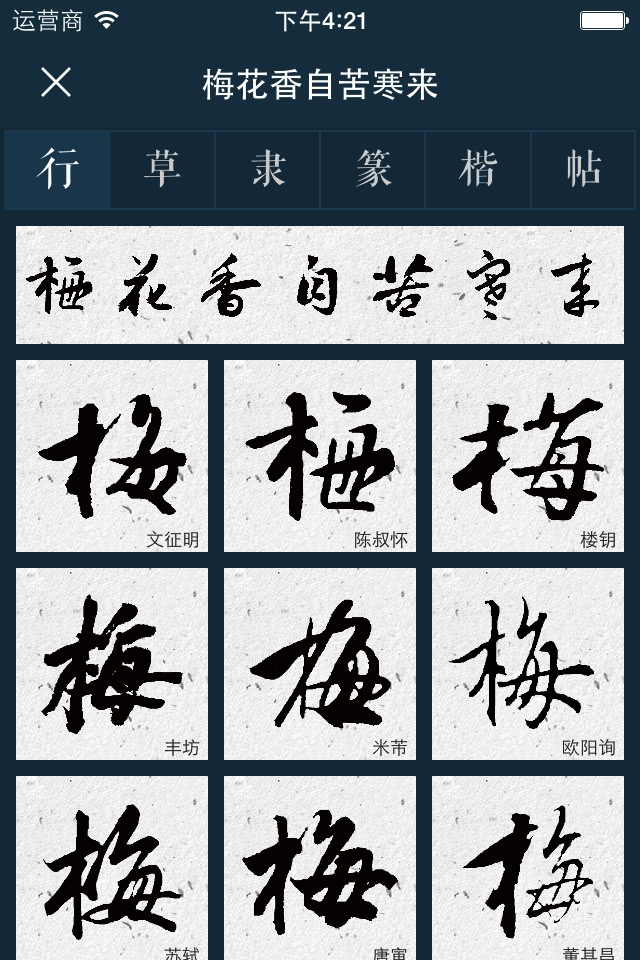 运营商 下午4:21
梅花香自苦寒来
行 草 隶 篆 楷 帖
梅花香自苦寒来
梅 梅 梅
文征明 陈叔怀 楼钥
梅 梅 梅
丰坊 米芾 欧阳询
梅 梅 梅
苏轼 唐寅 董其昌